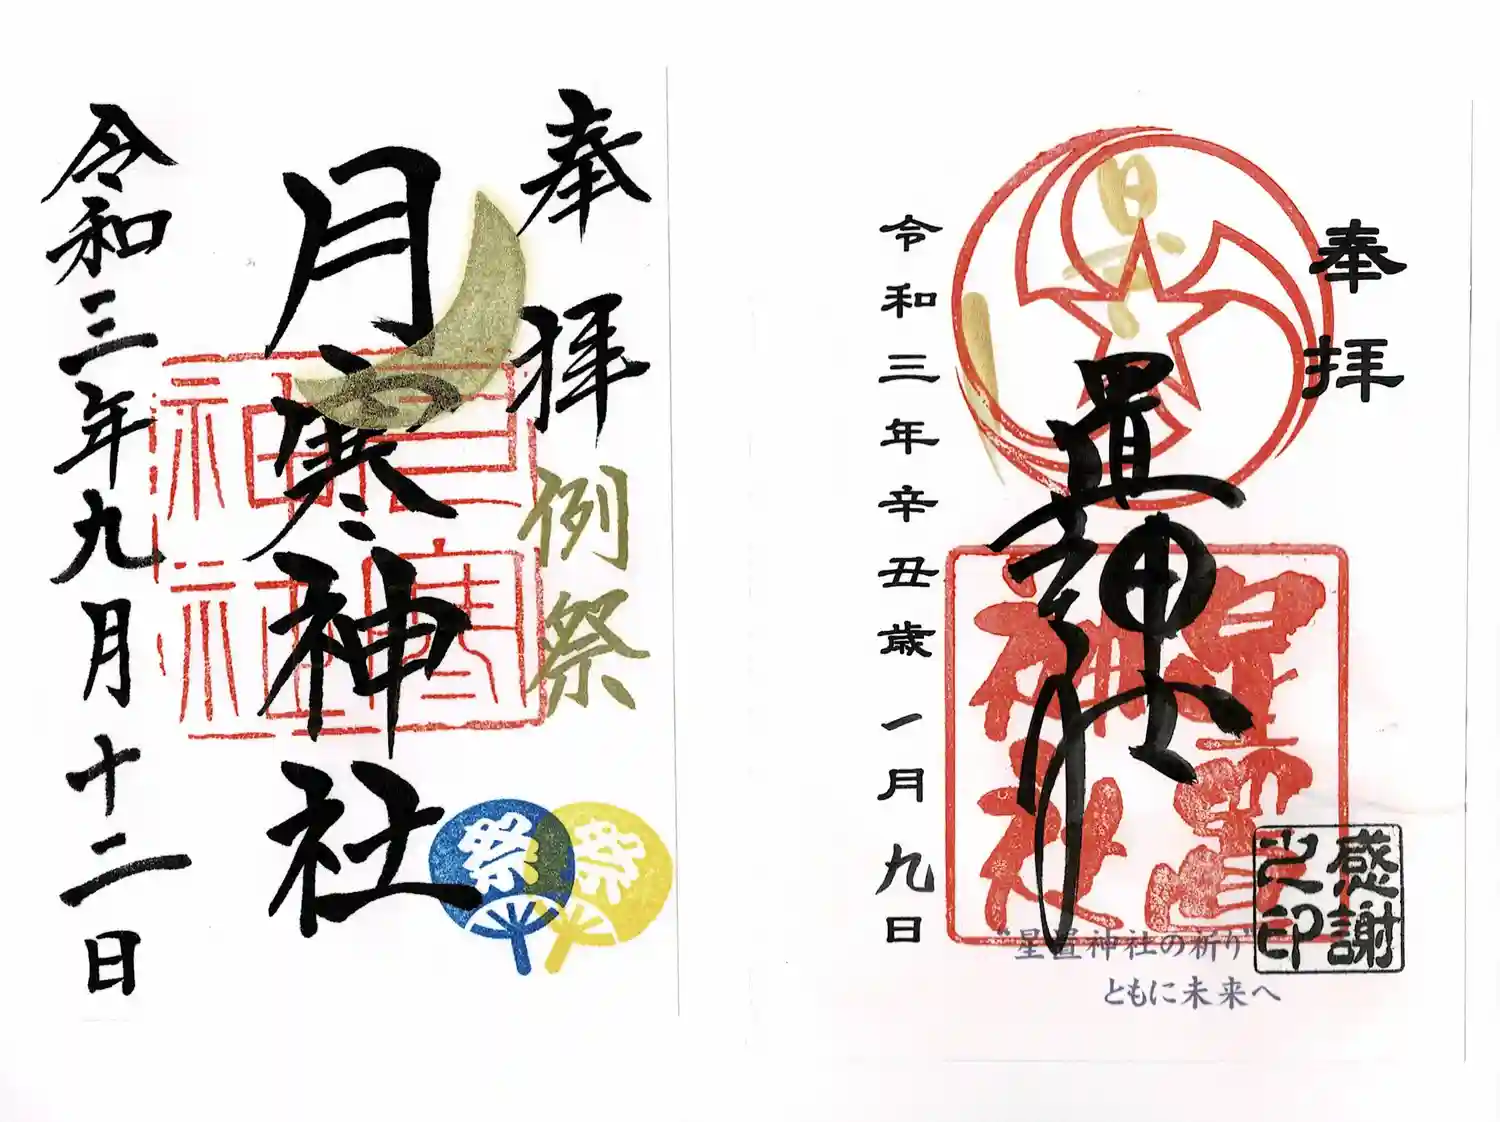 奉拝
例祭
月寒神社
祭
祭
令和三年九月十二日
奉拝
星置神社
星置神社
感謝之印
令和三年辛丑歳一月九日
"星置神社の祈り"
ともに未来へ